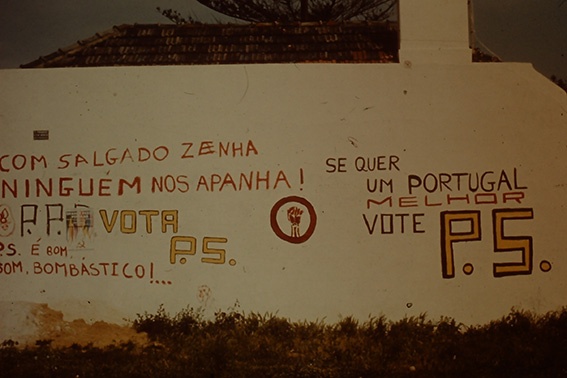 COM SALGADO ZENHA
NINGUÉM NOS APANHA!
VOTA
P.S.
P.S. É BOM
BOM, BOMBÁSTICO!...
SE QUER
UM PORTUGAL
MELHOR
VOTE P.S.